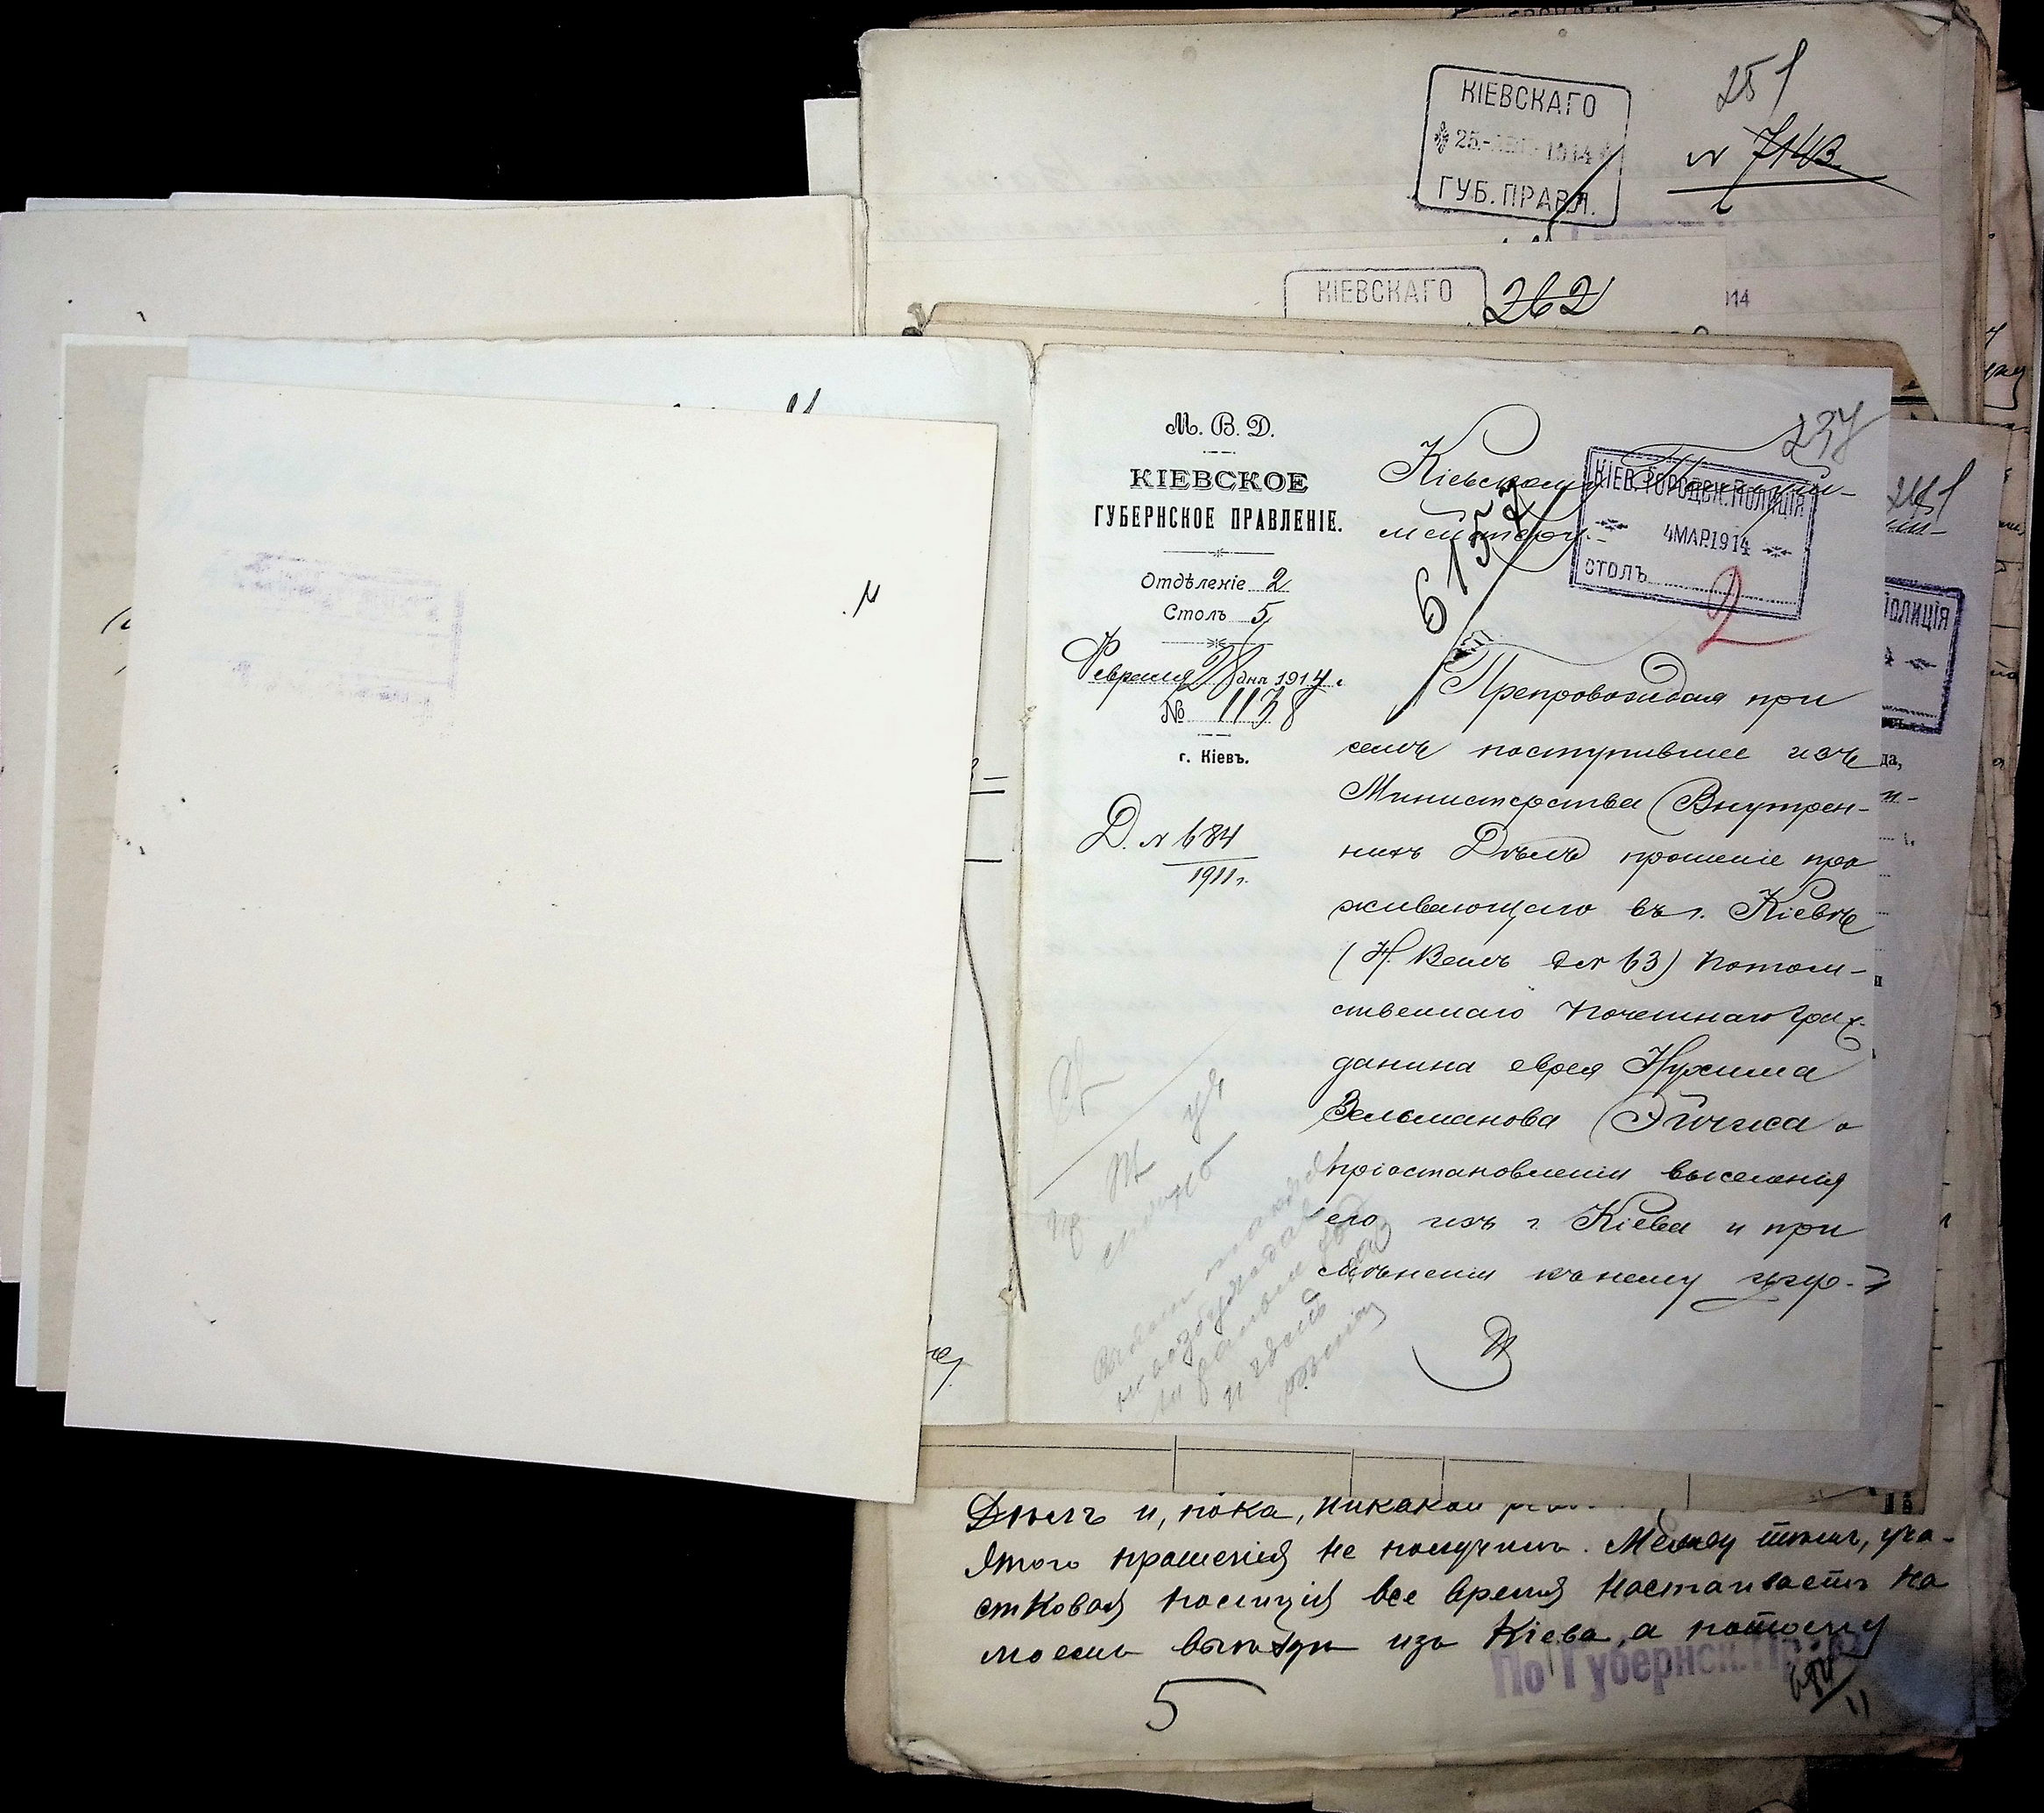 КІЕВСКАГО
25-АВГ-1914
ГУБ. ПРАВЛ.
251
N 7148
КІЕВСКАГО
262
М. В. Д.
КІЕВСКОЕ
ГУБЕРНСКОЕ ПРАВЛЕНІЕ.
Отдѣленіе 2
Столъ 5
Февраля 28 дня 1914 г.
№ 1138
г. Кіевъ.
Д. N 684
1911 г.
237
Кіевскому Полицій-
мейстеру.
КІЕВ. ГОРОДСК. ПОЛИЦІЯ
4 МАР. 1914
СТОЛЪ
2
6152
Препровождая при
семъ поступившее изъ
Министерства Внутрен-
нихъ Дѣлъ прошеніе про
живающаго въ г. Кіевѣ
(Н. Валъ д N 63) Потом-
ственнаго Почетнаго Граж-
данина еврея Нухима
Зельманова Эйчиса о
пріостановленіи выселенія
его изъ г. Кіева и при
мѣненіи къ нему цирк-
ПОЛИЦІЯ
Дѣлъ и, пока, никакой
этого прошенія не получилъ. Между тѣмъ, уча-
стковая полиція все время настаиваетъ на
моемъ выѣздѣ изъ Кіева, а потому
По Губернск. Пр
684
11
5